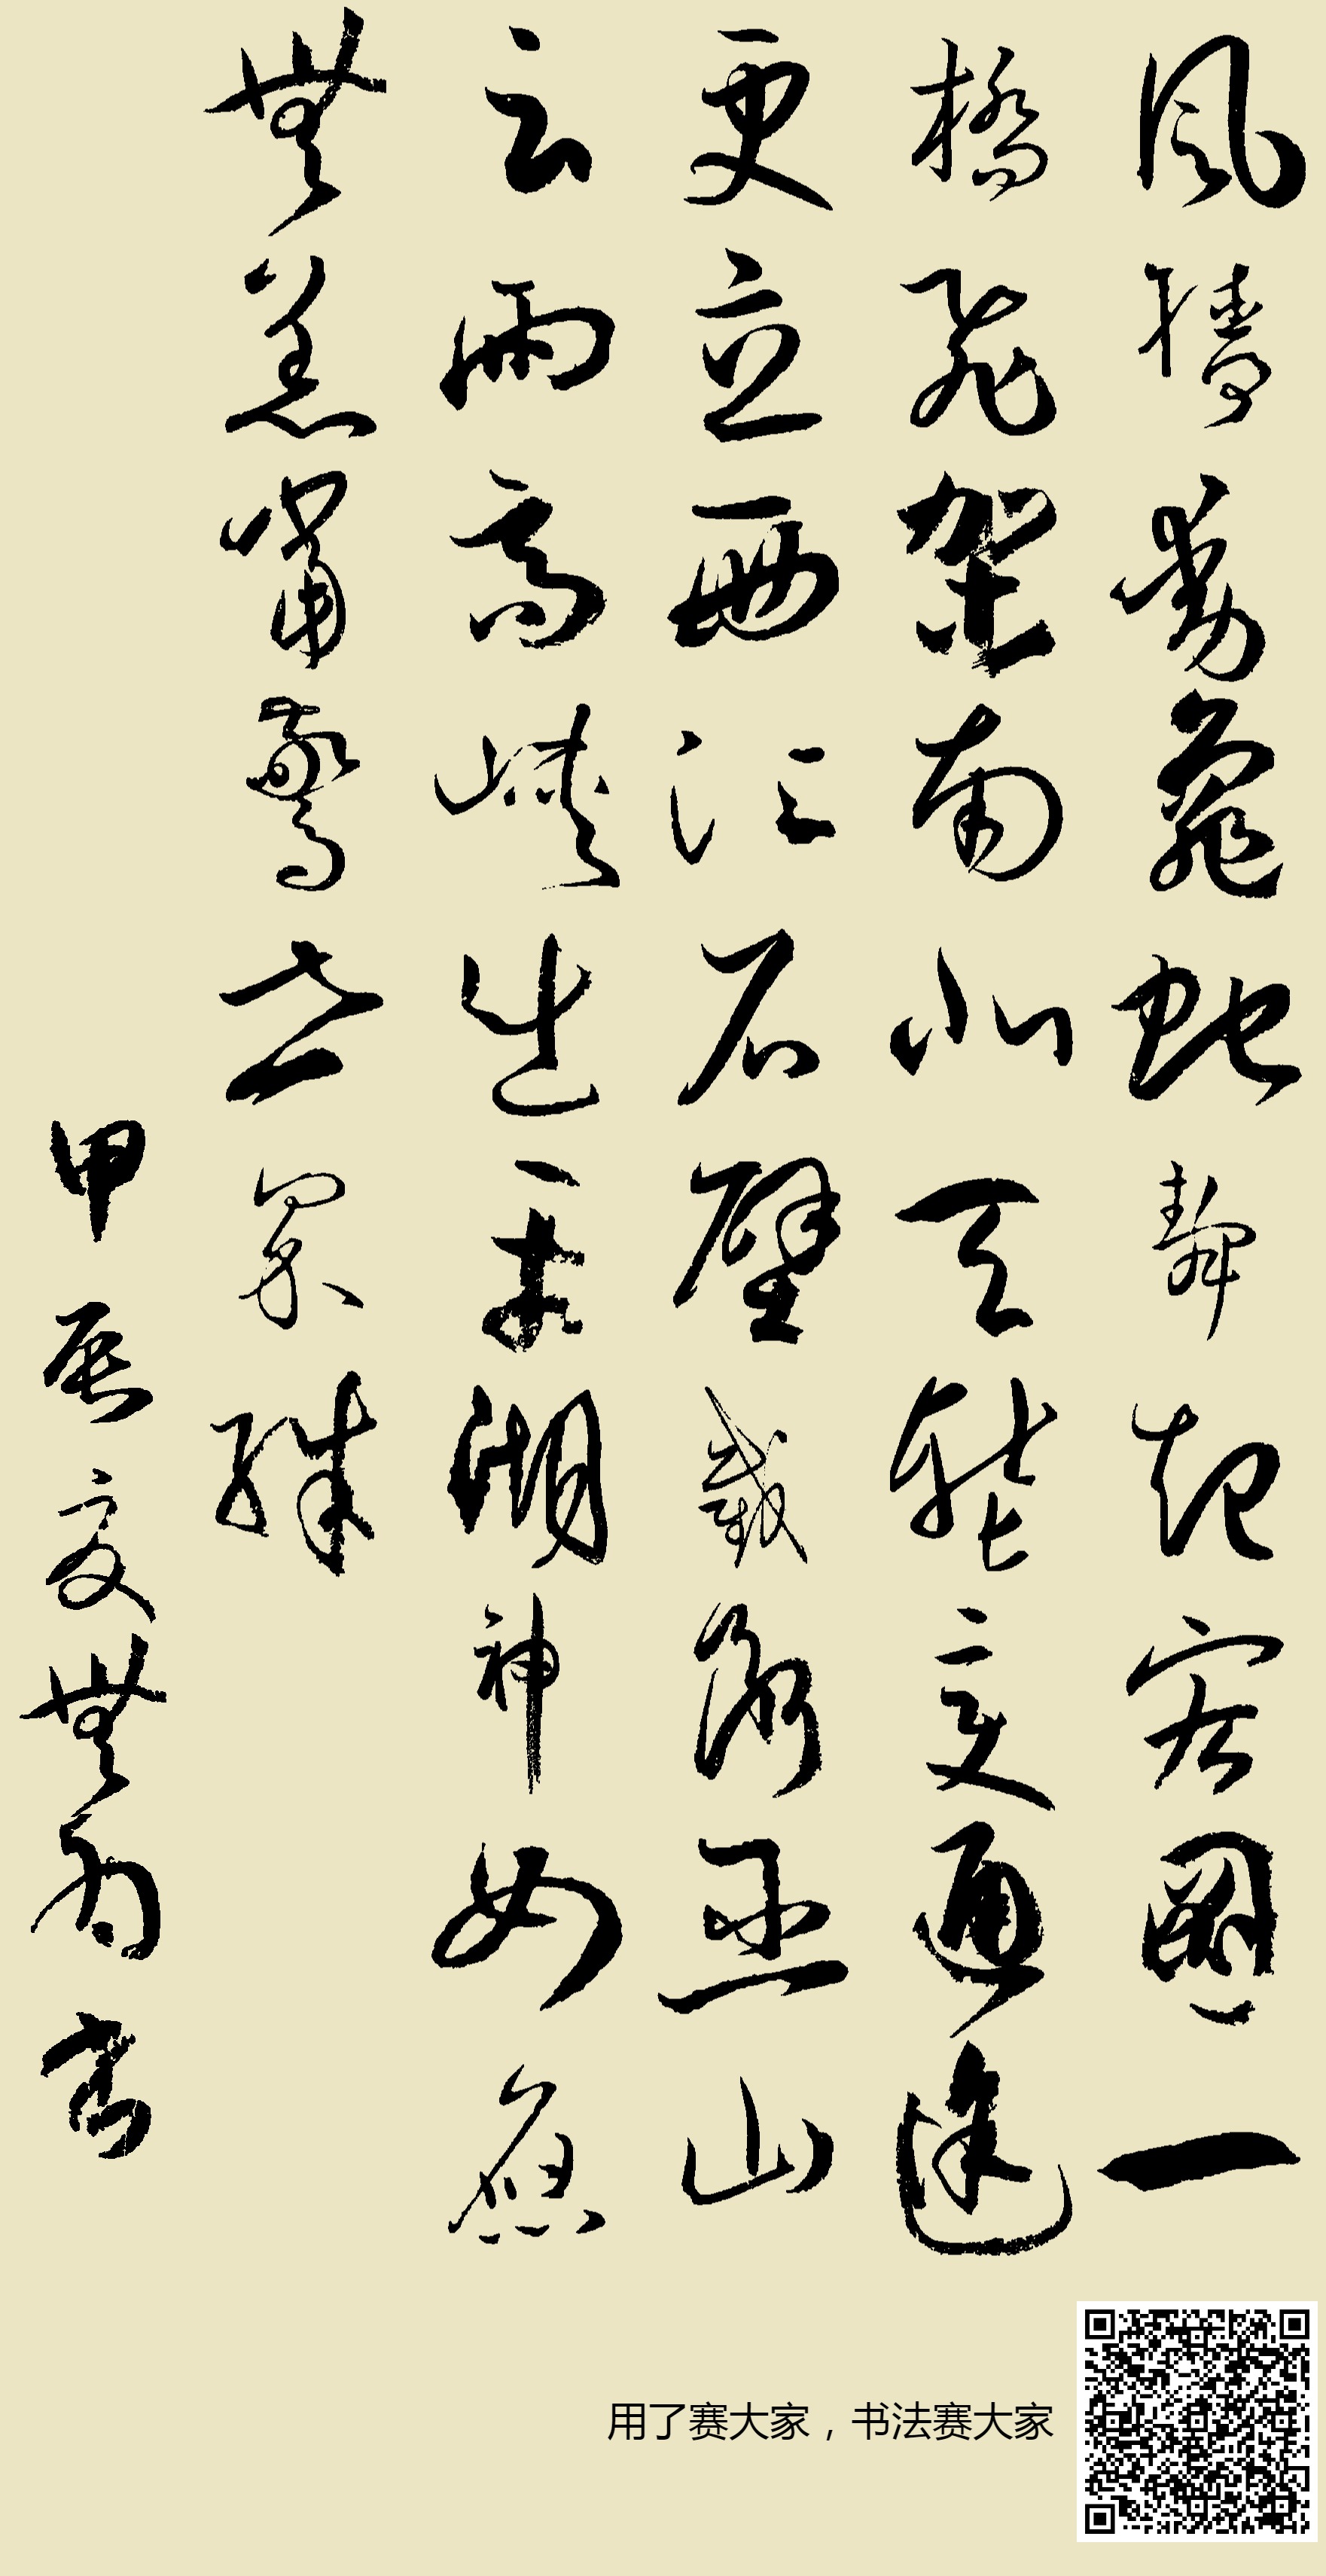 風檣動龜蛇静起宏圖一
橋飛架南北天塹變通途
更立西江石壁截斷巫山
云雨高峽出平湖神女應
無恙當驚世界殊
甲辰夏無為書
用了赛大家，书法赛大家